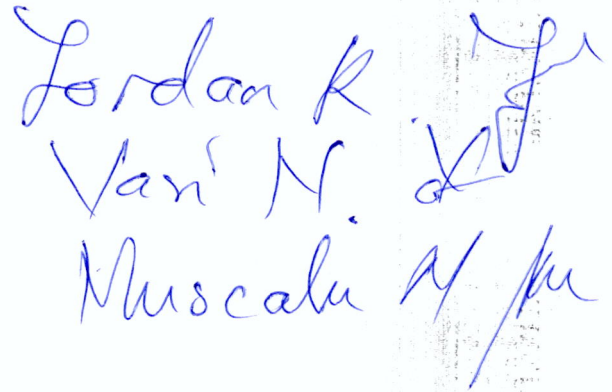 Iordan R
Vasi N.
Muscalu N